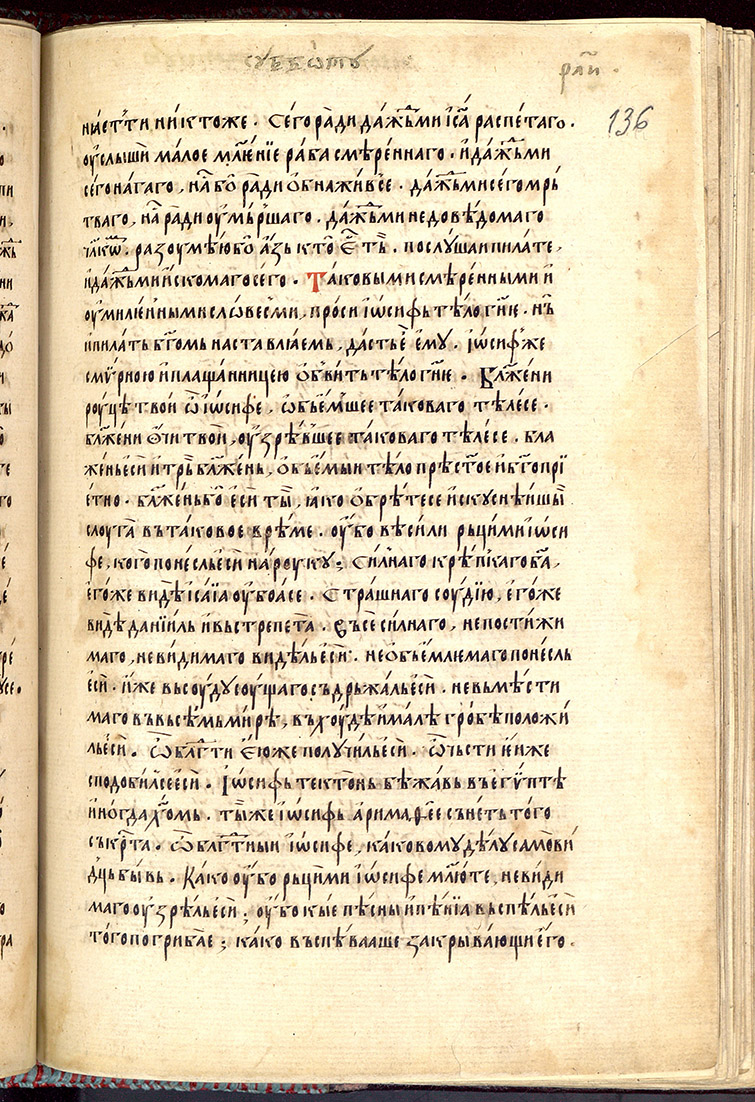 суббѡты
рл҃и
136
насть ни ктоже. Сего ра́ди да́ждь ми і҆с҃а распе́таго.
ᲂу҆слыши ма́лое мл҃е́нїе раба смѣ́реннаго. и҆ да́ждь ми
сего на́гаго, на́съ бо ра́ди ѻ҆бнажи́всѧ. да́ждь ми сего мрь
тваго, на́съ ради ᲂу҆мь́ршаго. да́ждь ми недовѣ́домаго
разоумѣ́ю бо̀ а҆́зъ кто є҆́сть. послꙋ́шаи пила́те,
и҆ да́ждь ми и҆́скомаго сего. Та́ковыми смѣ́ренными и҆
ᲂу҆миле́нными слѡвесми, проси і҆ѡ́сифь тѣ́ло гн҃е. нъ
и҆ пила́ть бг҃омь наставлѧ́емь, дасть є҆̀ є҆мꙋ. і҆ѡ́сиф же
смѵ́рною и҆ плаща́нницею ѻ҆бви́ть тѣ́ло гн҃е. Бл҃же́ни
роуцѣ твои ѽ і҆ѡ́сифе, ѡ҆бъе҆́мшее та́коваго тѣ́лесе.
бл҃же́ни ѻ҆́чи твои, ᲂу҆зрѣ́вшее та́коваго тѣ́лесе. бла
же́нь є҆си и҆ трь бл҃же́нь, ѻ҆бъе҆́мыи тѣ́ло прѣст҃ое и҆ бг҃опрї
е҆тно. бл҃же́нь бо̀ є҆си ты̀, ꙗ҆́ко ѻ҆брѣ́тесе и҆скꙋснѣ́ишїи
слоуга въ та́ковое врѣ́ме. ᲂу҆́бо вѣси ли рьци ми і҆ѡ́си
фе, кого поне́сль є҆си на роукꙋ; Си́лнаго крѣ́пкаго ба҃,
є҆го́же ви́дѣ і҆са́їа ᲂу҆боа́се. Стра́шнаго соудїю, є҆го́же
ви́дѣ данїи́ль и҆ вьстрепета̀. Въсеси́лнаго, непости́жи
маго, неви́димаго ви́дѣль є҆си. неѻ҆бъе҆́млемаго поне́сль
є҆си. и҆́же вьсоудꙋ соущаго съдрьжа́ль є҆си. невьмѣ́сти
маго въ вьсе́мь ми́рѣ, въ хоудѣ и҆ ма́лѣ гро́бѣ положи́
ль є҆си. Ѽ блг҃ти є҆́юже полꙋчи́ль є҆си. ѽ чьсти є҆́иже
сподоби́лсе є҆си. І҆ѡ́сифь тектѡнь бѣжа́вь въ є҆гѵ́птѣ
и҆ногда хо҃мь. ты́ же і҆ѡ́сифь а҆римаѳе́е сънеть того
съ крⷭ҇та. ѽ блг҃тныи і҆ѡ́сифе, ка́ковомꙋ дѣ́лꙋ самови́
дць бы́вь. Ка́ко ᲂу҆́бо рьци ми і҆ѡ́сифе мл҃ю те, неви́ди
маго ᲂу҆зрѣ́ль є҆си; ᲂу҆́бо кы́е пѣ́сны и҆ пѣ́нїа вьспѣ́ль є҆си
того погрибае; ка́ко въспѣ́вааше закрыва́ющи є҆го.